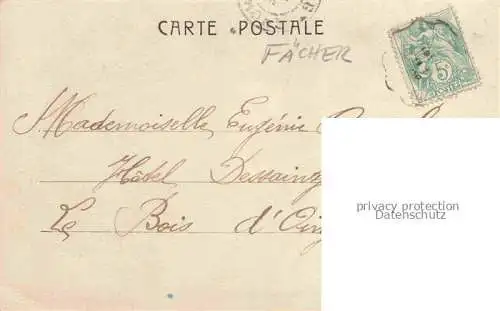 CARTE POSTALE
FÄCHER
5
Mademoiselle Eugénie
Hôtel Dessaint
Le Bois d'Oin
privacy protection
Datenschutz